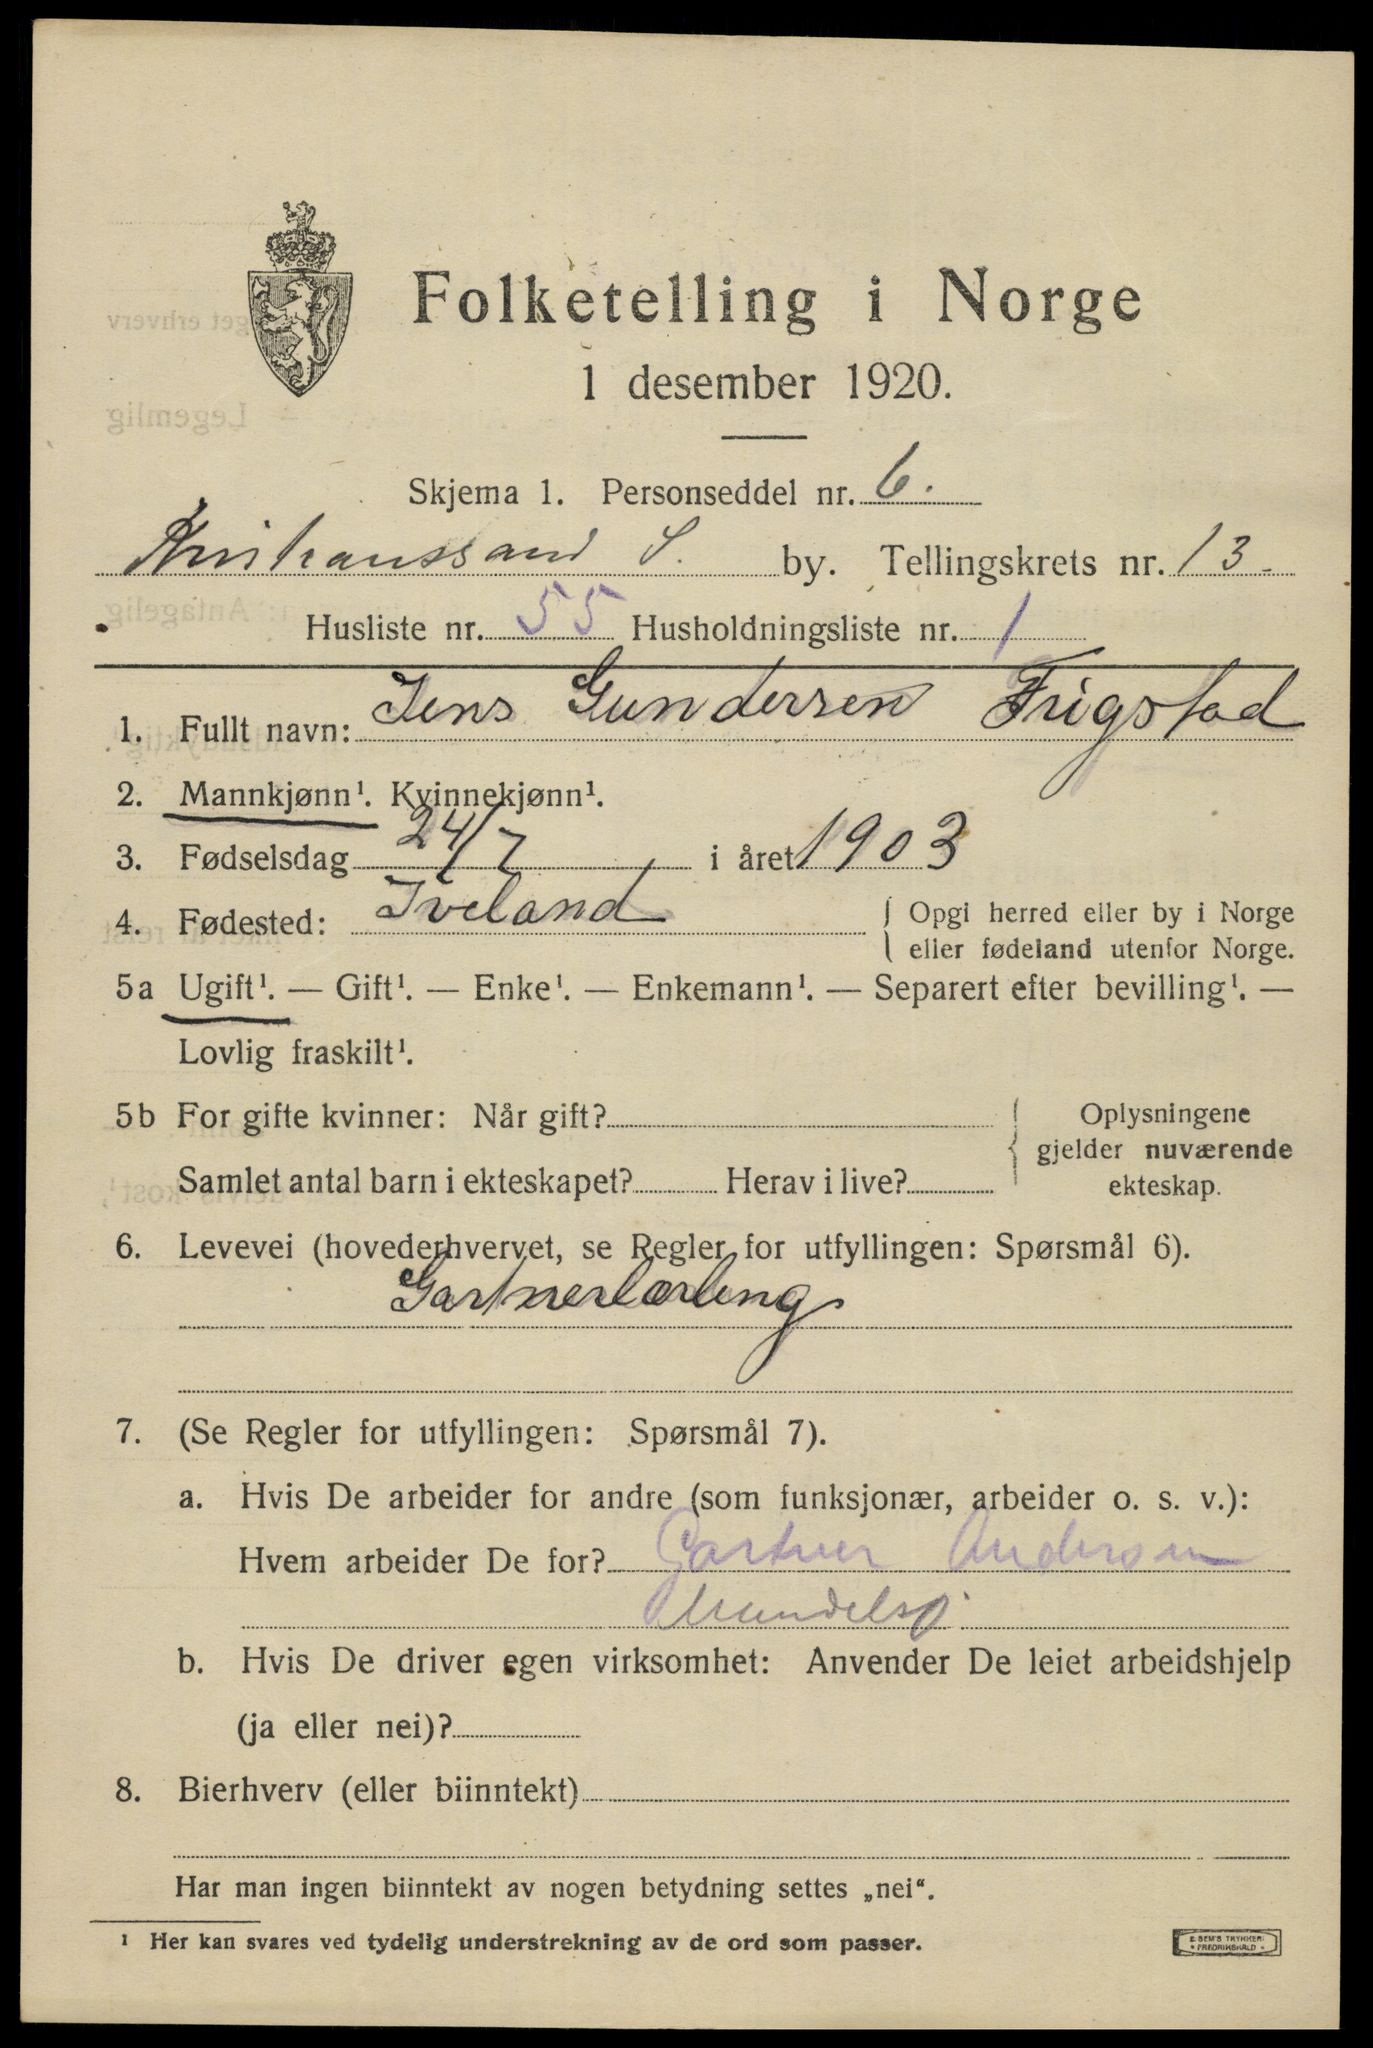 Folketelling i Norge
1 desember 1920.
Skjema 1. Personseddel nr. 6.
Kristianssand S. by. Tellingskrets nr. 13.
Husliste nr. 55 Husholdningsliste nr. 1
1. Fullt navn: Jens Gundersen Frigstad
2. Mannkjønn¹. Kvinnekjønn¹.
3. Fødselsdag 24/7 i året 1903
4. Fødested: Iveland { Opgi herred eller by i Norge
eller fødeland utenfor Norge.
5a Ugift¹. — Gift¹. — Enke¹. — Enkemann¹. — Separert efter bevilling¹. —
Lovlig fraskilt¹.
5b For gifte kvinner: Når gift? { Oplysningene
gjelder nuværende
Samlet antal barn i ekteskapet? Herav i live? ekteskap.
6. Levevei (hovederhvervet, se Regler for utfyllingen: Spørsmål 6).
Gartnerlærling
7. (Se Regler for utfyllingen: Spørsmål 7).
a. Hvis De arbeider for andre (som funksjonær, arbeider o. s. v.):
Hvem arbeider De for? Gartner Andersen
b. Hvis De driver egen virksomhet: Anvender De leiet arbeidshjelp
(ja eller nei)?
8. Bierhverv (eller biinntekt)
Har man ingen biinntekt av nogen betydning settes „nei“.
¹ Her kan svares ved tydelig understrekning av de ord som passer.
E SEM'S TRYKKERI
• FREDRIKSHALD •